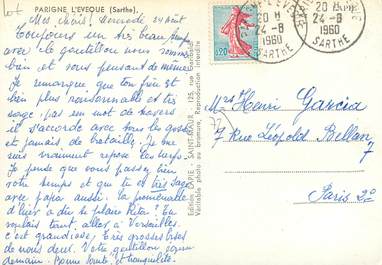 Lot
PARIGNE L'EVEQUE (Sarthe).
Mes chéris! Mercredi 24 août
Toujours un très beau temps
avec le gentillou nous sommes
bien et vous pensant de même
Je remarque que ton frère est
bien plus raisonnable et très
sage, pas un mot de travers
il s'accorde avec tous les gosses
et jamais de bataille. Je me
suis vraiment reposé les nerfs.
Je pense que vous passez bien
votre temps et que tu es très sage
avec papa aussi. La promenade
d'hier a dû se plaire Rita! Tu
voulais tant aller à Versailles.
c'est grandiose. Très grosses bises
de nous deux. Votre gentillon,
demain. Bonne santé et tranquillité.
Edition LAPIE - SAINT-MAUR - 125, rue
Véritable photo au bromure, Reproduction interdite
0,20
20 H
24-8
1960
SARTHE
20 H
24-8
1960
SARTHE
Mrs Henri Garcia
7 Rue Léopold Bellan
7
Paris 2e